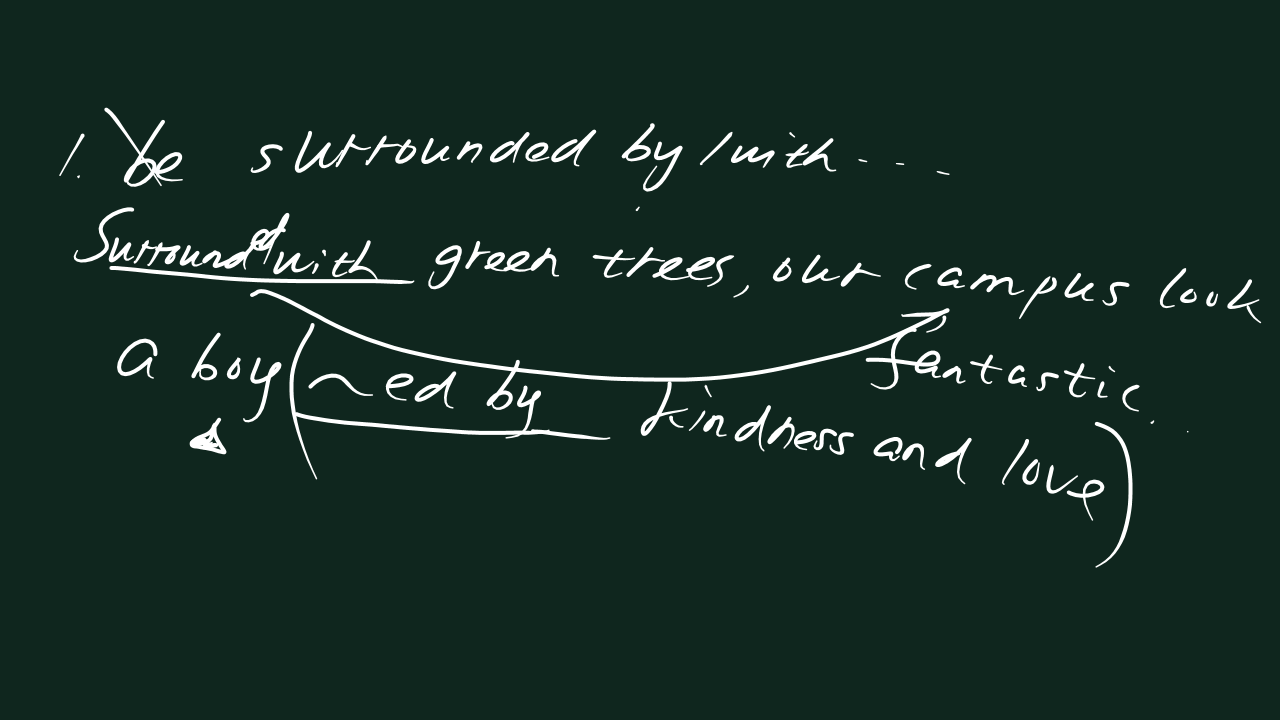 1. be surrounded by/with - - -
Surrounded with green trees, our campus look
fantastic.
a boy (~ed by kindness and love)